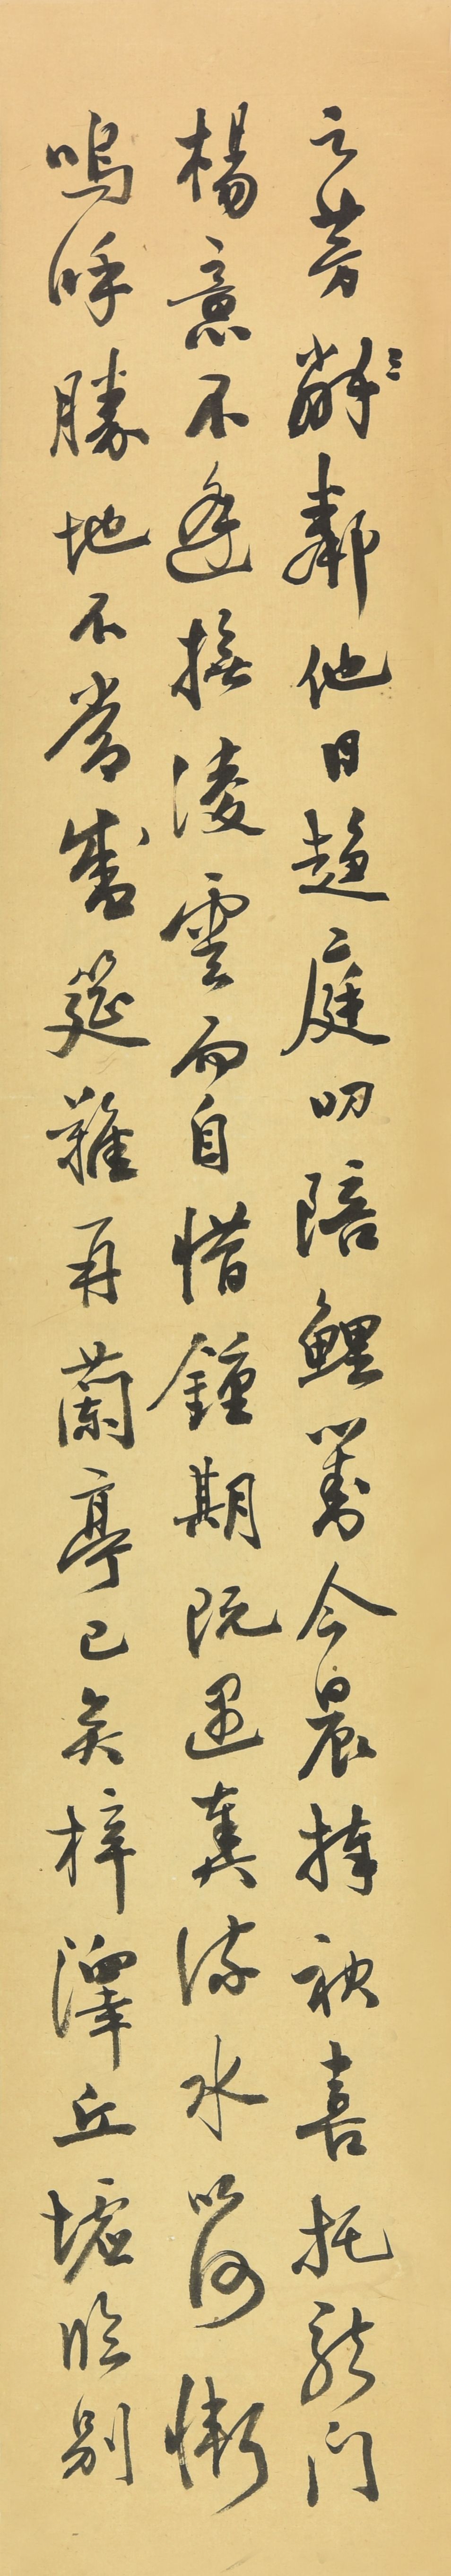 之芳鄰他日趨庭叨陪鯉對今晨捧袂喜托龍門
楊意不逢撫凌雲而自惜鍾期既遇奏流水以何慚
嗚呼勝地不常盛筵難再蘭亭已矣梓澤丘墟臨別